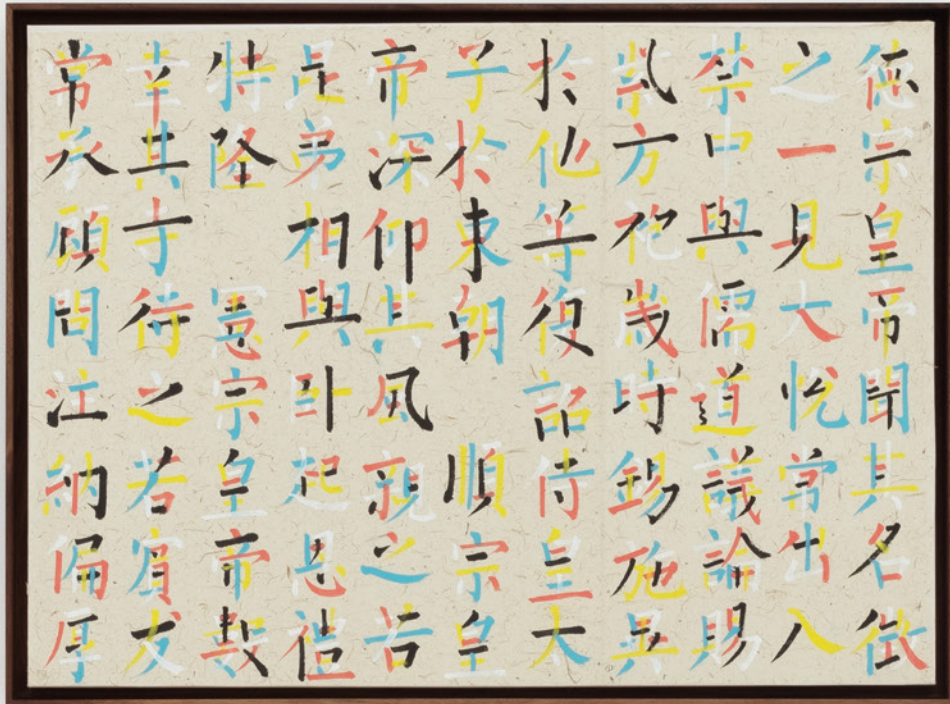 德宗皇帝聞其名徵
之一見大悅常出入
禁中與儒道議論賜
紫方袍歲時錫施異
於他等復詔侍皇太
子於東朝 順宗皇
帝深仰其風親之若
昆弟相與臥起恩禮
特隆 憲宗皇帝數
幸其寺待之若賓友
常承顧問注納偏厚